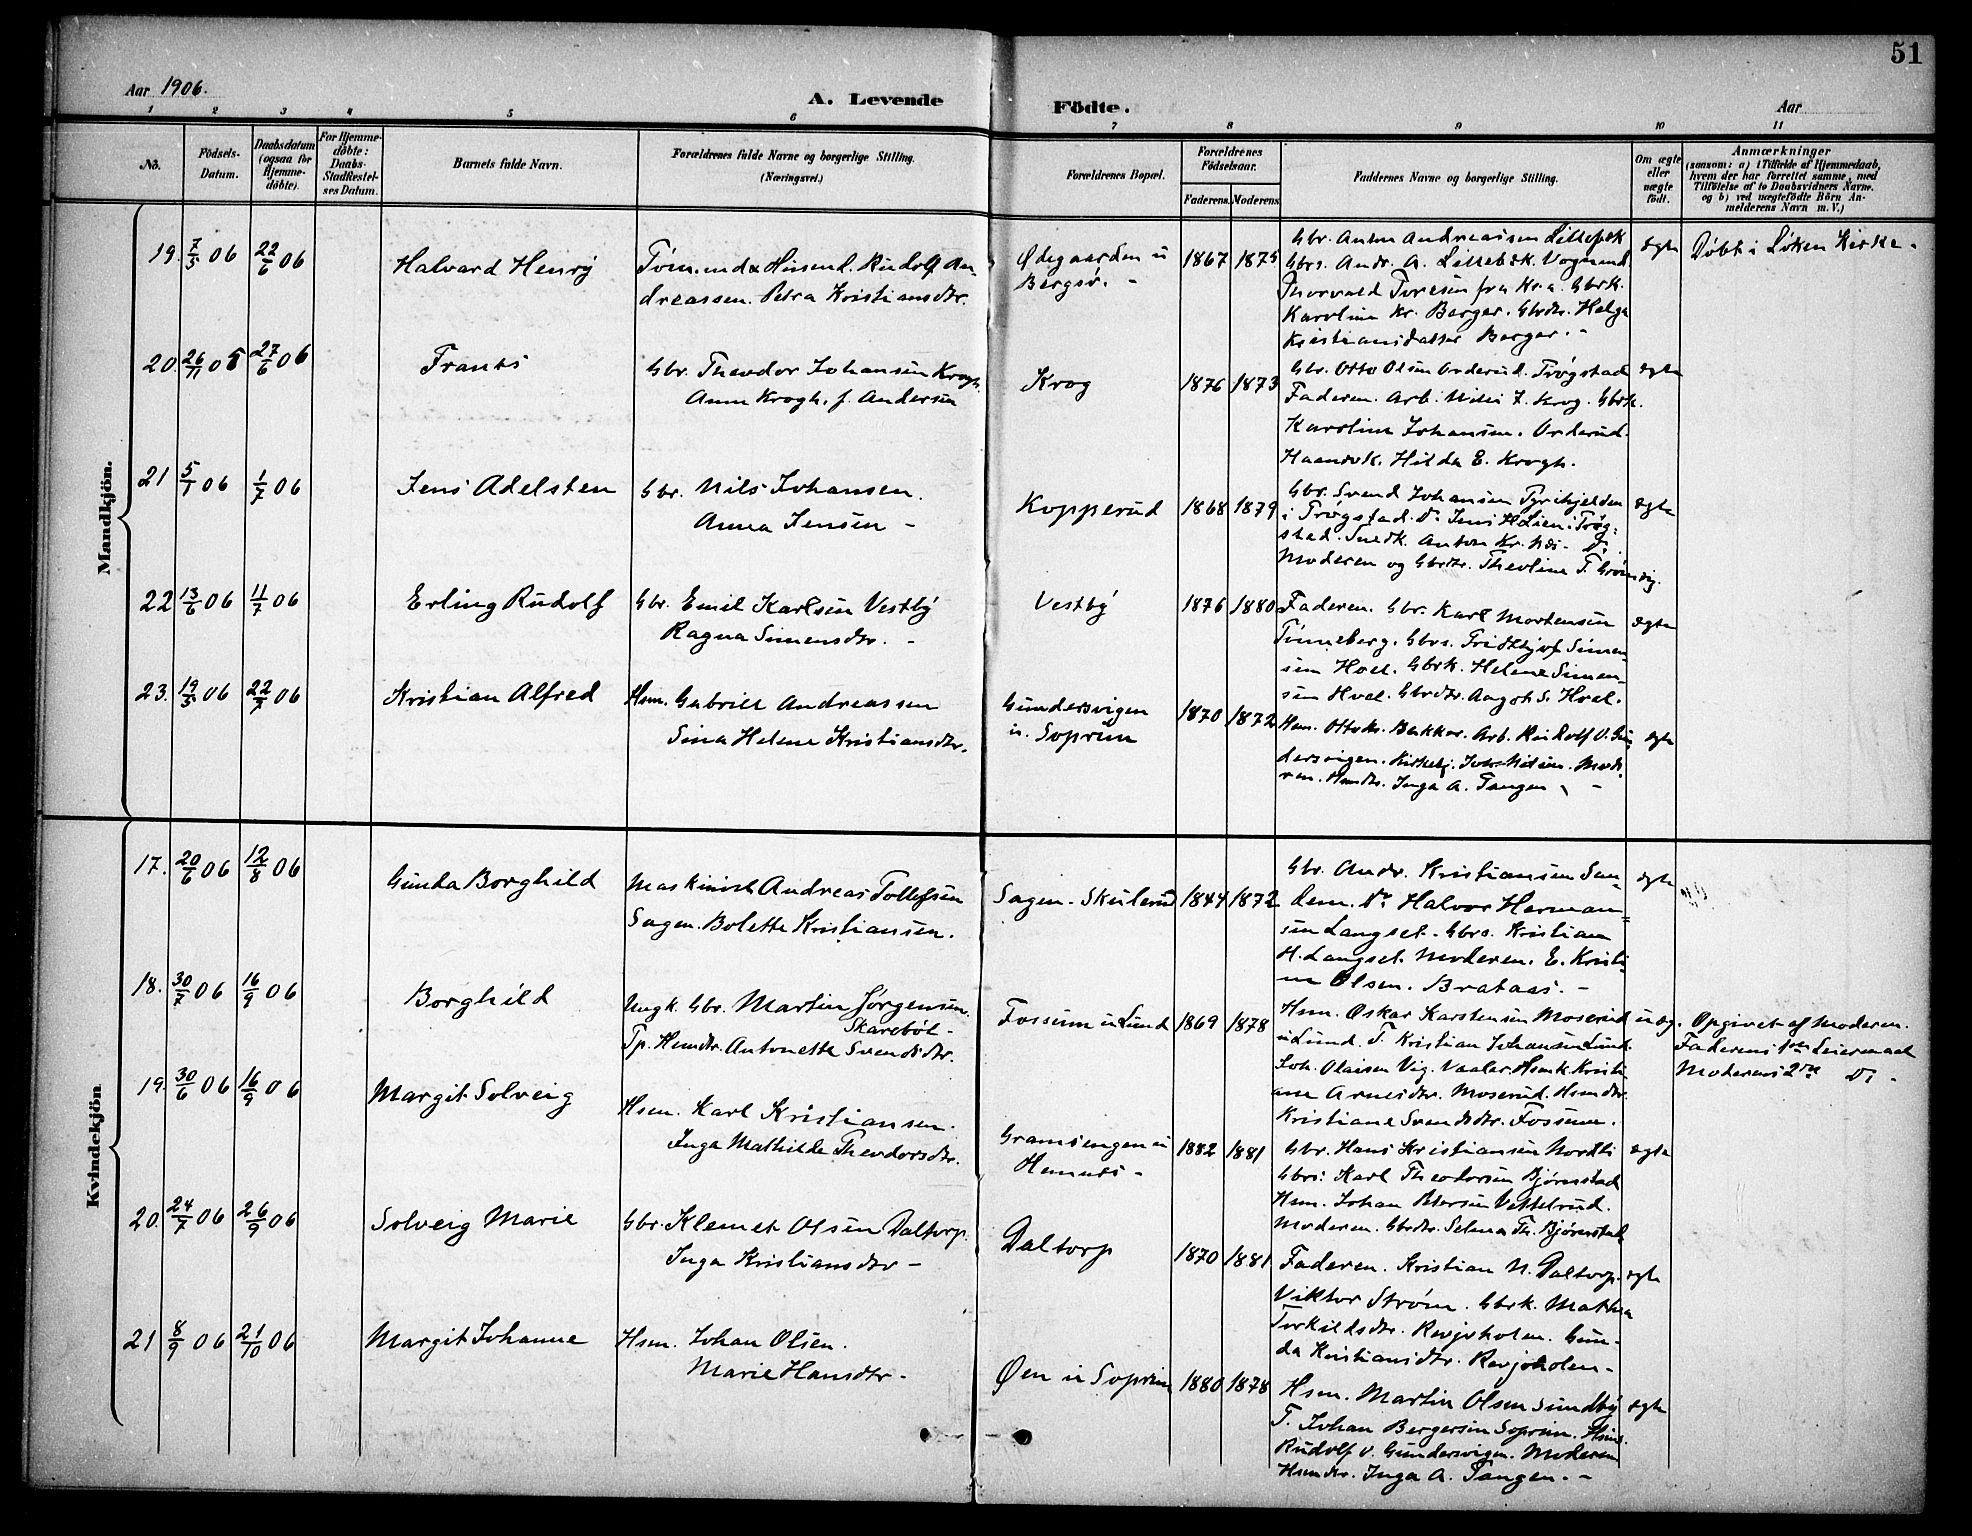 51
Aar 1906.
A. Levende Födte.
Aar
1 2 3 4 5 6 7 8 9 10 11
No.
Födsels-Datum.
Daabsdatum (ogsaa for Hjemme-döbte).
For Hjemme-döbte: Daabs-Stadfæstel-ses Datum.
Barnets fulde Navn.
Forældrenes fulde Navne og borgerlige Stilling. (Næringsvei.)
Forældrenes Bopæl.
Forældrenes Födselsaar.
Faderens. Moderens.
Faddernes Navne og borgerlige Stilling.
Om ægte eller uægte födt.
Anmærkninger
(saasom: a) i Tilfælde af Hjemmedaab,
hvem der har forrettet samme, med
Tilföielse af to Daabsvidners Navne.
og b) ved uægtefödte Börn An-
melderens Navn m. V.)
Mandkjön.
19. 7/5 06 22/6 06
Halvard Henry
Rudolf An-
dreassen. Petra Kristiansdtr.
Ødegaarden u
Bergsø. -
1867 1875
Gbr. Anton Andreassen Lillebæk
Gbrs. Andr. A. Lillebæk. Vognmd
Thorvald Toresen fra Kr.a. Gbrk.
Karoline Kr. Berger. Gbrdtr. Helga
Kristiansdatter Berger. -
ægte
Døbt i Løken Kirke.
20. 26/11 05 27/6 06
Frants
Gbr. Theodor Johansen Krogh
Anna Krogh. f. Andersen
Krog
1876 1873
Gbr. Otto Olsen Orderud. Trøgstad
Faderen. Arb. Nils J. Krog. Gbrk.
Karoline Johansen. Orderud.
Haandvk. Hilda E. Krogh.
ægte
21 5/1 06 1/7 06
Jens Adelsten
Gbr. Nils Johansen.
Anna Jensen -
Kopperud
1868 1879
Gbr. Svend Johansen Tyrihjelden
i Trøgstad. Do Jens H Lien i Trøg-
stad. Snedk. Anton Kr. Næs. Do.
Moderen og Gbrdtr. Theoline T. Grønvig.
ægte
22 13/6 06 11/7 06
Erling Rudolf
Gbr. Emil Karlsen Vestby
Ragna Simensdtr. -
Vestby
1876 1880
Faderen. Gbr. Karl Mortensen
Tønneberg. Gbrs. Fridthjof Simen-
sen Hoel. Gbrk. Helene Simen-
sen Hoel. Gbrdtr. Aagot S. Hoel.
ægte
23. 19/5 06 22/7 06
Kristian Alfred
Hsm. Gabriel Andreassen
Sina Helene Kristiansdtr.
Gundersvigen
u. Soprim
1870 1872
Hsm. Otto Kr. Bakker. Arb. Rudolf O. Gun-
dersvigen. Kirkebj. Nilsen. Mode-
ren. Hsmdtr. Inga A. Tangen. -
ægte
Kvindekjön
17. 20/6 06 12/8 06
Gunda Borghild
Maskinist Andreas Tollefsen
Sagen. Bolette Kristiansen.
Sagen. Skulerud
1844 1872
Gbr. Andr. Kristiansen San-
dem. Do Halvor Herman-
sen Langset. Gbrs. Kristian
H. Langset. Moderen. E. Kristi-
ne Olsen. Brataas. -
ægte
18. 30/7 06 16/9 06
Borghild
Ungk. Gbr. Martin Jørgensen.
Skarebøl -
Tp. Hsmdtr. Antonette Svendsdtr.
Fossum u Lund
1869 1878
Hsm. Oskar Karstensen Moserud
u Lund. T. Kristian Johansen Lund.
Joh. Olaisen Vig. Vaaler. Hsmk. Kristi-
ane Arnesdtr. Moserud. Hsmdtr.
Kristiane Svendsdtr. Fossum.
uæg.
Opgivet af Moderen.
Faderens 1ste Leiermaal
Moderens 2det Do -
19. 30/6 06 16/9 06
Margit Solveig
Hsm. Karl Kristiansen.
Inga Mathilde Theodorsdtr.
Gramsengen u
Hemnes -
1882 1881
Gbr. Hans Kristiansen Nordli
Gbrs. Karl Theodorsen Bjørnstad
Hsm. Johan Petersen Vettelrud.
Moderen. Gbrdtr. Selma Th. Bjørnstad
ægte
20. 24/7 06 26/9 06
Solveig Marie
Gbr. Klemet Olsen Daltorp.
Inga Kristiansdtr -
Daltorp
1870 1881
Faderen. Kristian N. Daltorp.
Viktor Strøm. Gbrk. Mathea
Torkildsdtr. Revjeholen. Gun-
da Kristiansdtr. Revjeholen -
ægte
21 8/9 06 21/10 06
Margit Johanne
Hsm. Johan Olsen.
Marie Hansdtr -
Øen u Soprim
1880 1878
Hsm. Martin Olsen Sundby
T. Johan Bergersen Soprim. Hsms.
Rudolf O. Gundersvigen. Moderen
Hsmdtr. Inga A. Tangen. -
ægte